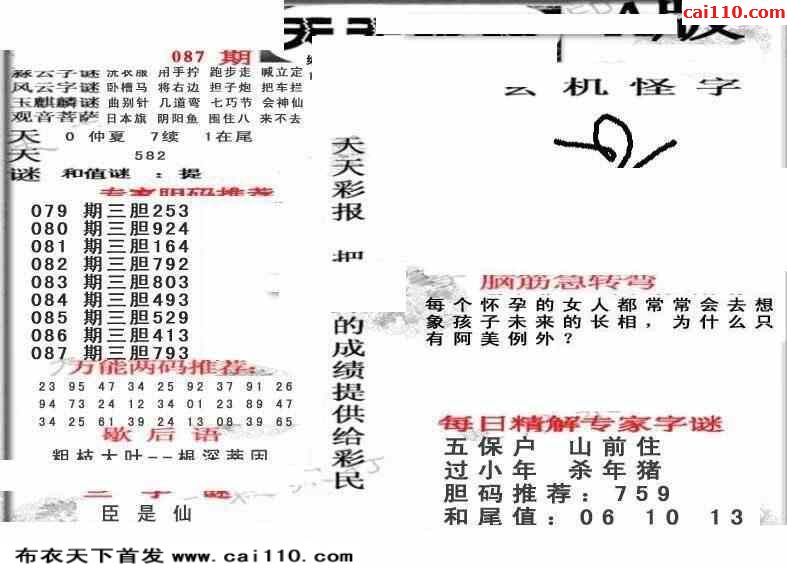 cai110.com
087 期
森云字谜 洗衣服 用手拧 跑步走 喊立定
风云字谜 卧槽马 将右边 担子炮 把车拦
玉麒麟谜 曲别针 几道弯 七巧节 会神仙
观音菩萨 日本旗 阴阳鱼 围住八 来不去
天 0 仲夏 7续 1在尾
天 582
谜 和值谜 : 提
专家胆码推荐
079 期三胆253
080 期三胆924
081 期三胆164
082 期三胆792
083 期三胆803
084 期三胆493
085 期三胆529
086 期三胆413
087 期三胆793
万能两码推荐:
23 95 47 34 25 92 37 91 26
94 73 24 12 34 01 23 89 47
34 25 61 39 24 13 08 39 65
歇后语
粗枝大叶--根深蒂固
三字谜
臣是仙
天天彩报 把
的成绩提供给彩民
玄机怪字
脑筋急转弯
每个怀孕的女人都常常会去想
象孩子未来的长相，为什么只
有阿美例外？
每日精解专家字谜
五保户 山前住
过小年 杀年猪
胆码推荐: 759
和尾值: 06 10 13
布衣天下首发 www.cai110.com